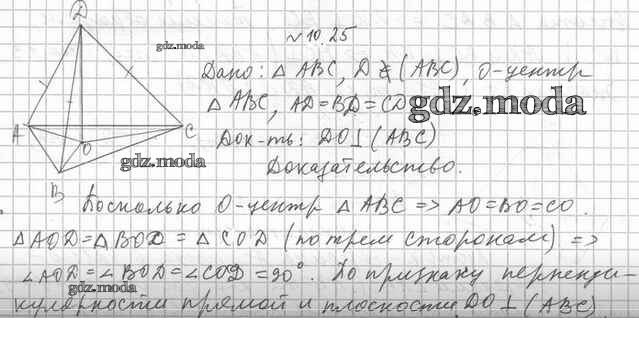 D
gdz.moda
№ 10.25
Дано: △ ABC, D ∉ (ABC), O-центр
△ ABC, AD=BD=CD
gdz.moda
A
C
O
Док-ть: DO⊥(ABC)
gdz.moda
Доказательство.
B
Поскольку O-центр △ ABC => AO=BO=CO.
△AOD=△BOD=△COD (по трем сторонам) =>
∠AOD=∠BOD=∠COD=90°. По признаку перпенди-
gdz.moda
кулярности прямой и плоскости DO⊥(ABC)